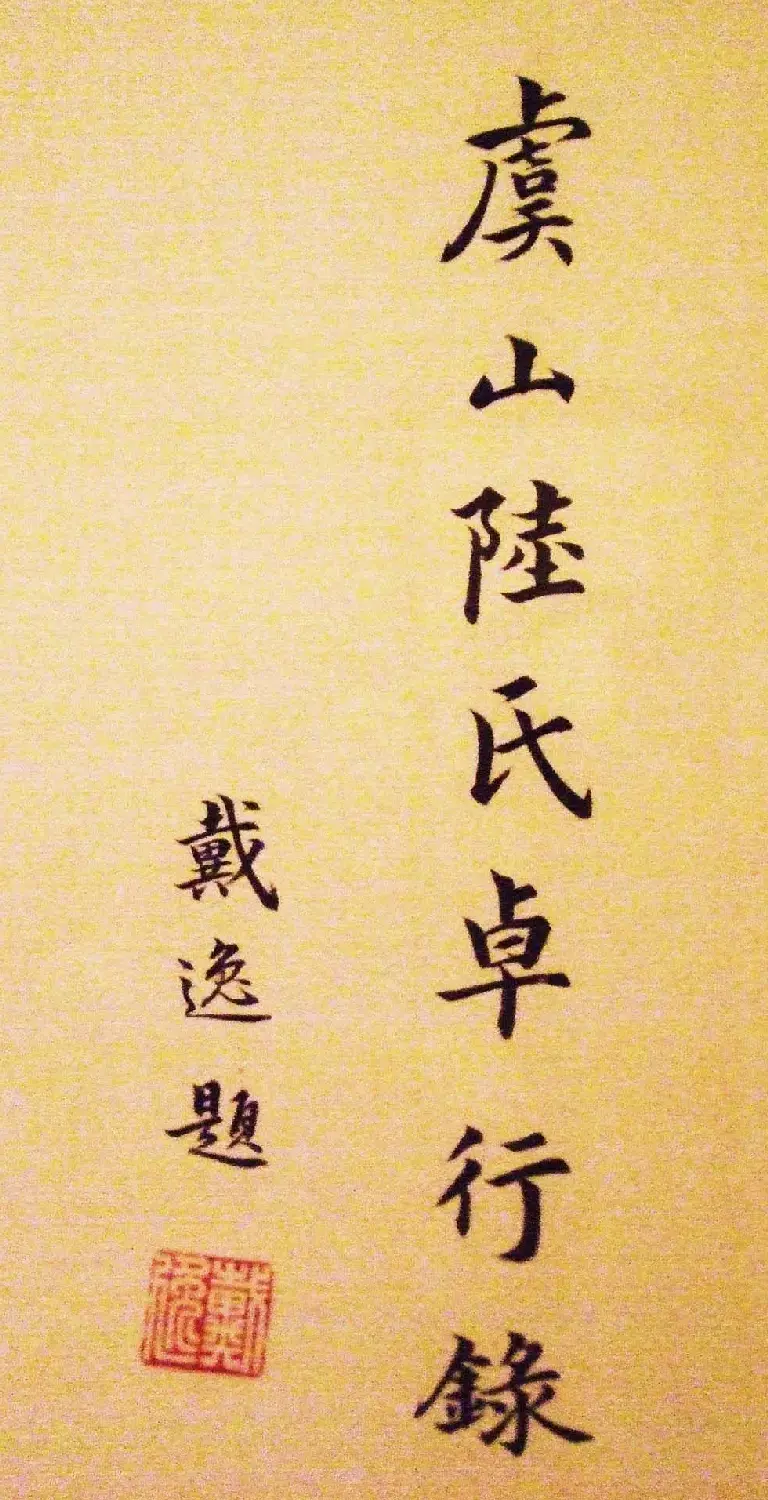 虞山陸氏卓行錄
戴逸題
戴逸